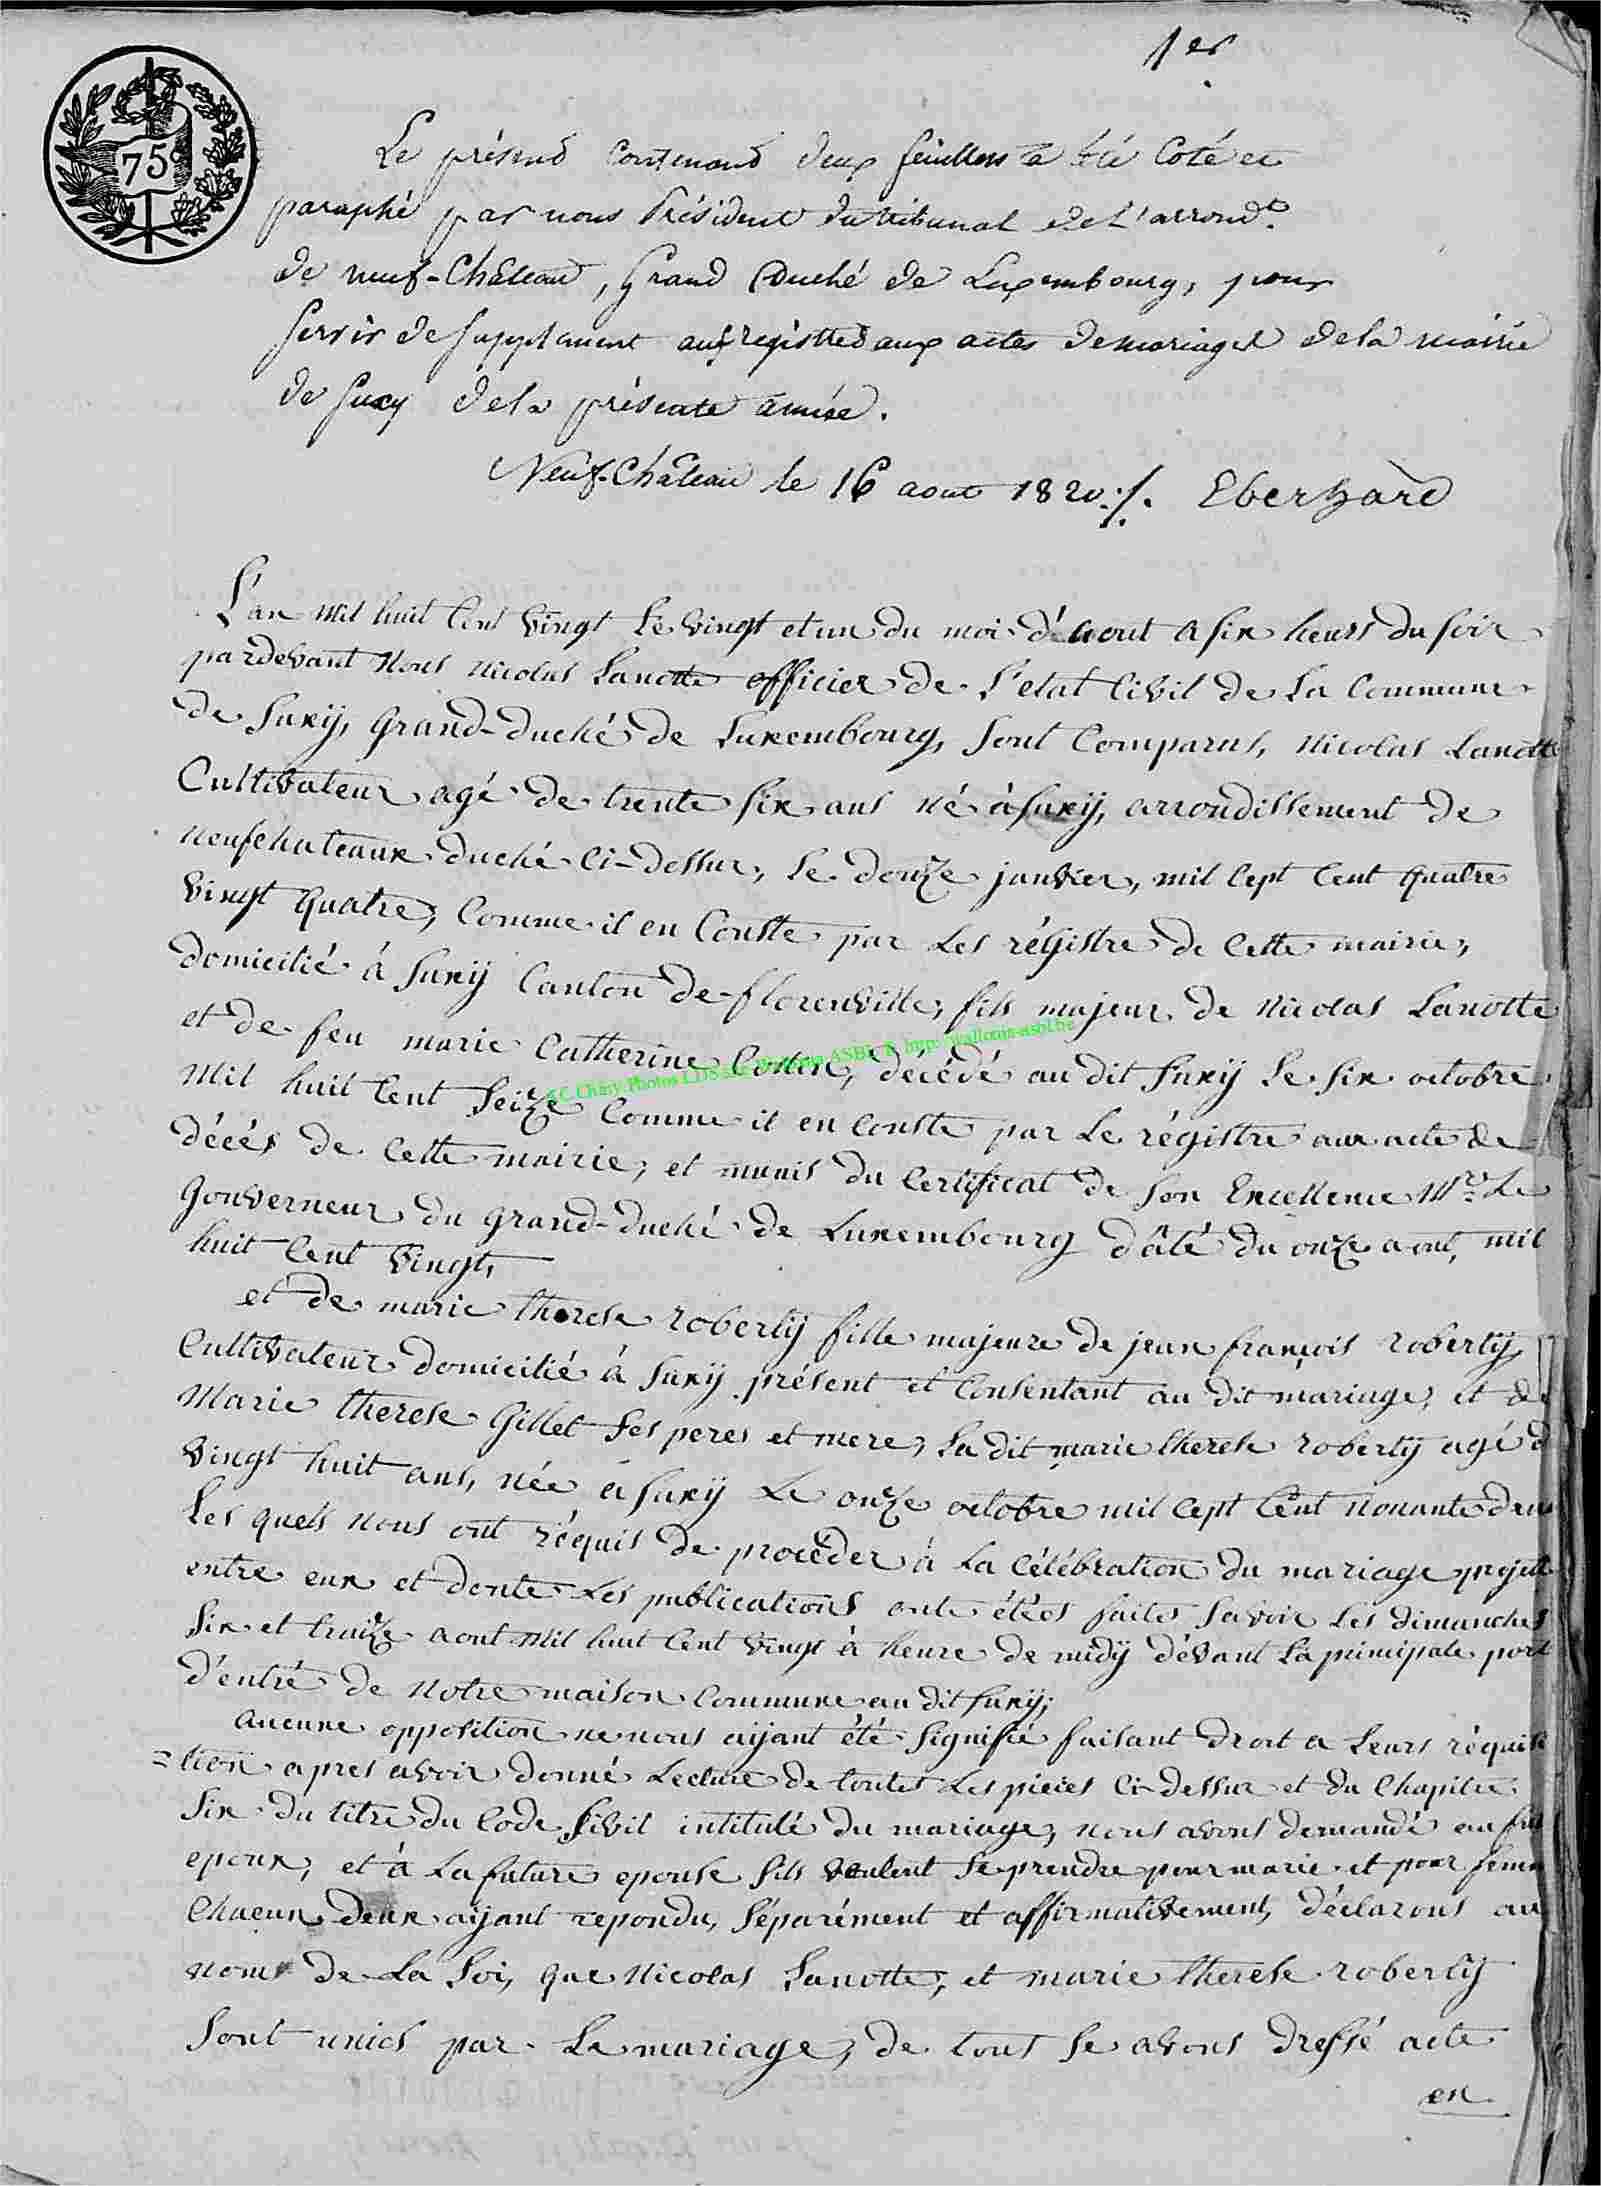 1er
75
Le présend contenand deux feuillets a été Coté et
paraphé par nous Président du tribunal de L'arrondt.
de neuf-Château, Grand Duché de Luxembourg, pour
servir de supplement aux registres aux actes de mariages de la mairie
de Suxy de la présente année.
Neuf-Château le 16 aout 1820 ./. Eberhard
L'an mil huit Cent vingt Le vingt et un du moi d'aout a six heurs du soir
pardevant Nous nicolas Lanotte officier de L'etat Civil de La Commune
de Suxÿ, Grand-duché de Luxembourg, sont Comparus, nicolas Lanotte
Cultivateur agé de trente six ans né à suxÿ, arrondissement de
neufchateaux duché Ci-dessur, Le douze janvier, mil Cept Cent quatre
vingt quatre, Comme il en Conste par Les régistre de Cette mairie,
domicilié à Suxÿ Canton de florenville, fils majeur de Nicolas Lanotte
et de feu marie Catherine décédé au dit Suxÿ Le six octobre
AC Chiny Photos ASBL http://wallonia-asbl.be
mil huil Cent Seize Comme il en Conste par Le régistre aux acte de
décés de Cette mairie, et munis du Certificat de son Excellence Mr. Le
Gouverneur du grand-duché de Luxembourg dâté du onze aout, mil
huit Cent vingt,
et de marie therese robertÿ fille majeure de jean françois robertÿ,
Cultivateur domicilié à Suxÿ présent et Consentant au dit mariage, et de
Marie therese Gillet ses peres et mere, La dit marie therese robertÿ agé d
vingt huit ans, née à Suxÿ Le onze octobre mil Cept Cent nonante deu
Les quels nous ont réquis de procéder à La Célébration du mariage projett
entre eux et donte Les publications onte étées faites savoir Les dimanches
six et traize aout mil huit Cent vingt à heure de midÿ dévant La principale port
d'entré de notre maison Commune au dit Suxÿ;
aucune opposition ne nous aÿant été signifié faisant droit a Leurs réquisi
=tion apres avoir donné Lecture de toutes Les pieces Ci-dessur et du Chapitre
six du titre du Code Sivil intitulé du mariage, nous avons demandé au fut
epoux, et à La future epouse sils veulent se prendre pour marie et pour femm
Chacun deux aÿant repondu, séparément et affirmativement, déclarons au
noms de La Loi, que Nicolas Lanotte, et marie therese robertÿ
sont unies par Le mariage, de tout se avons dressé acte
en